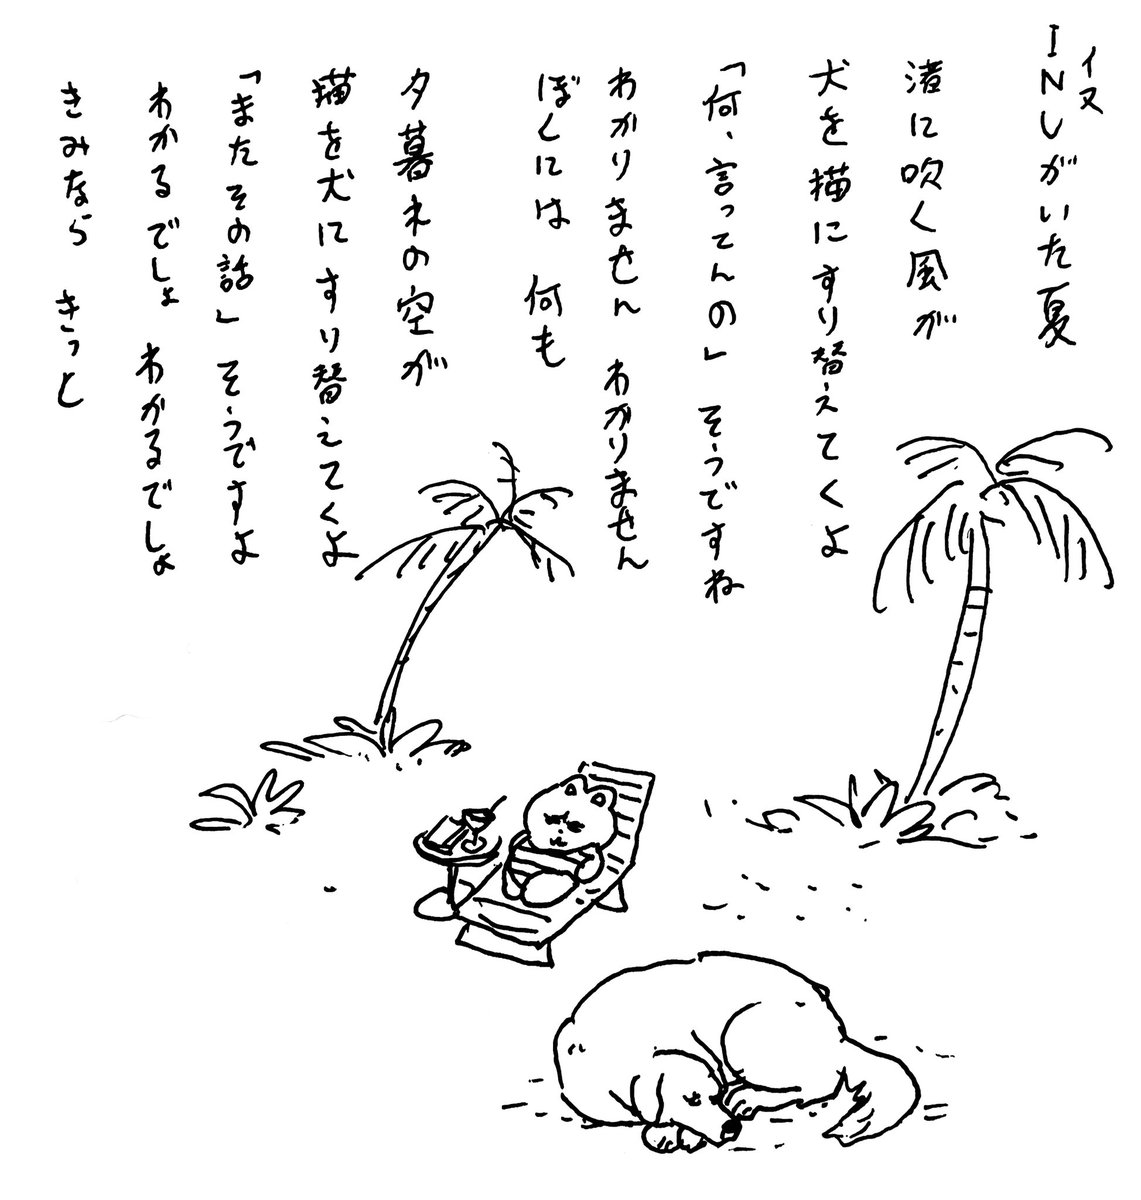 INUがいた夏
イヌ
渚に吹く風が
犬を猫にすり替えてくよ
「何、言ってんの」そうですね
わかりません わかりません
ぼくには 何も
夕暮れの空が
猫を犬にすり替えてくよ
「またその話」そうですよ
わかるでしょ わかるでしょ
きみなら きっと